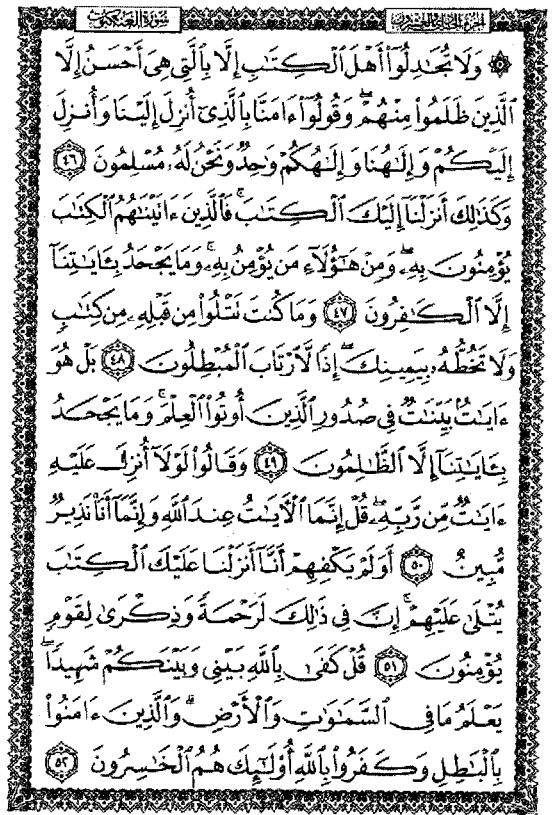 الجزء الحادي والعشرون
سورة العنكبوت
۞ وَلَا تُجَٰدِلُوٓا۟ أَهْلَ ٱلْكِتَٰبِ إِلَّا بِٱلَّتِى هِىَ أَحْسَنُ إِلَّا
ٱلَّذِينَ ظَلَمُوا۟ مِنْهُمْ ۖ وَقُولُوٓا۟ ءَامَنَّا بِٱلَّذِىٓ أُنزِلَ إِلَيْنَا وَأُنزِلَ
إِلَيْكُمْ وَإِلَٰهُنَا وَإِلَٰهُكُمْ وَٰحِدٌ وَنَحْنُ لَهُۥ مُسْلِمُونَ ٤٦
وَكَذَٰلِكَ أَنزَلْنَآ إِلَيْكَ ٱلْكِتَٰبَ ۚ فَٱلَّذِينَ ءَاتَيْنَٰهُمُ ٱلْكِتَٰبَ
يُؤْمِنُونَ بِهِۦ ۖ وَمِنْ هَٰٓؤُلَآءِ مَن يُؤْمِنُ بِهِۦ ۚ وَمَا يَجْحَدُ بِـَٔايَٰتِنَآ
إِلَّا ٱلْكَٰفِرُونَ ٤٧ وَمَا كُنتَ تَتْلُوا۟ مِن قَبْلِهِۦ مِن كِتَٰبٍ
وَلَا تَخُطُّهُۥ بِيَمِينِكَ ۖ إِذًا لَّٱرْتَابَ ٱلْمُبْطِلُونَ ٤٨ بَلْ هُوَ
ءَايَٰتٌۢ بَيِّنَٰتٌ فِى صُدُورِ ٱلَّذِينَ أُوتُوا۟ ٱلْعِلْمَ ۚ وَمَا يَجْحَدُ
بِـَٔايَٰتِنَآ إِلَّا ٱلظَّٰلِمُونَ ٤٩ وَقَالُوا۟ لَوْلَآ أُنزِلَ عَلَيْهِ
ءَايَٰتٌ مِّن رَّبِّهِۦ ۖ قُلْ إِنَّمَا ٱلْـَٔايَٰتُ عِندَ ٱللَّهِ وَإِنَّمَآ أَنَا۠ نَذِيرٌ
مُّبِينٌ ٥٠ أَوَلَمْ يَكْفِهِمْ أَنَّآ أَنزَلْنَا عَلَيْكَ ٱلْكِتَٰبَ
يُتْلَىٰ عَلَيْهِمْ ۚ إِنَّ فِى ذَٰلِكَ لَرَحْمَةً وَذِكْرَىٰ لِقَوْمٍ
يُؤْمِنُونَ ٥١ قُلْ كَفَىٰ بِٱللَّهِ بَيْنِى وَبَيْنَكُمْ شَهِيدًا ۖ
يَعْلَمُ مَا فِى ٱلسَّمَٰوَٰتِ وَٱلْأَرْضِ ۗ وَٱلَّذِينَ ءَامَنُوا۟
بِٱلْبَٰطِلِ وَكَفَرُوا۟ بِٱللَّهِ أُو۟لَٰٓئِكَ هُمُ ٱلْخَٰسِرُونَ ٥٢